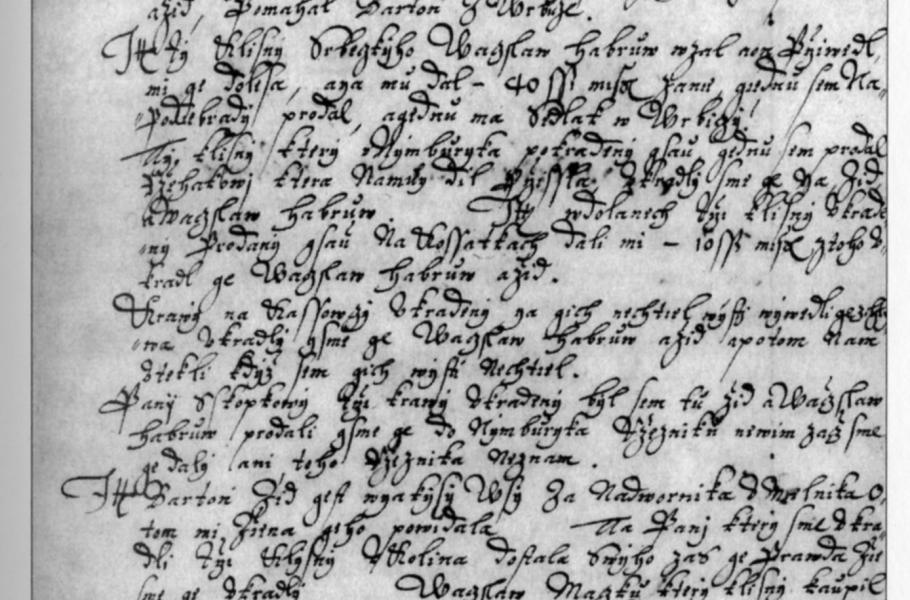 a žid, Pomahal Barton z Wrbicze.
Itē Ty Klisny Srbeczkyho Waczslaw habruw wzal aon Przivedl
mi ge dolesa, a ya mu dal – 40 ssˢ misſ Panu, gednu sem Na
Podiebrady prodal, agednu ma Sedlak w Wrbiczy.
Ty, klisny ktery v Nymburyka pokradeny gsau gednu sem prodal
Rzehakowj ktera Namuy dil Przissla. Vkradly sme ge ya, Žid
a Waczslaw habruw. Itē wdolanech Tři klisny vkrade
ny Prodany gsau Na Kossatkach dali mi – 10 ssˢ misſ ztoho v
kradl ge Waczslaw habruw a žid.
Krawy na Kassowczy vkradeny ya gich nechtiel wysti wywedli
wa vkradly gsme ge Waczslaw habruw a žid apotom Nam
vtekli když sem gich wysti Nechtiel.
Panij Sskopkowy Tři krawy vkradeny byl sem tu Žid a Waczslaw
habruw prodali gsme ge do Nymburyka Rzeznikū newim zač sme
ge daly ani toho Rzeznika Neznam.
Itē Barton Žid gest nyakysy Wsy Za Nadwornika v Melnika o
tom mi Žiena geho powidala Ta Panj ktery sme vkra
dli Tři Klysny v Kolina dostala Swyho zas ge Prawda že
sme ge vkradly Waczslaw Maczku ktery klisny kaupil